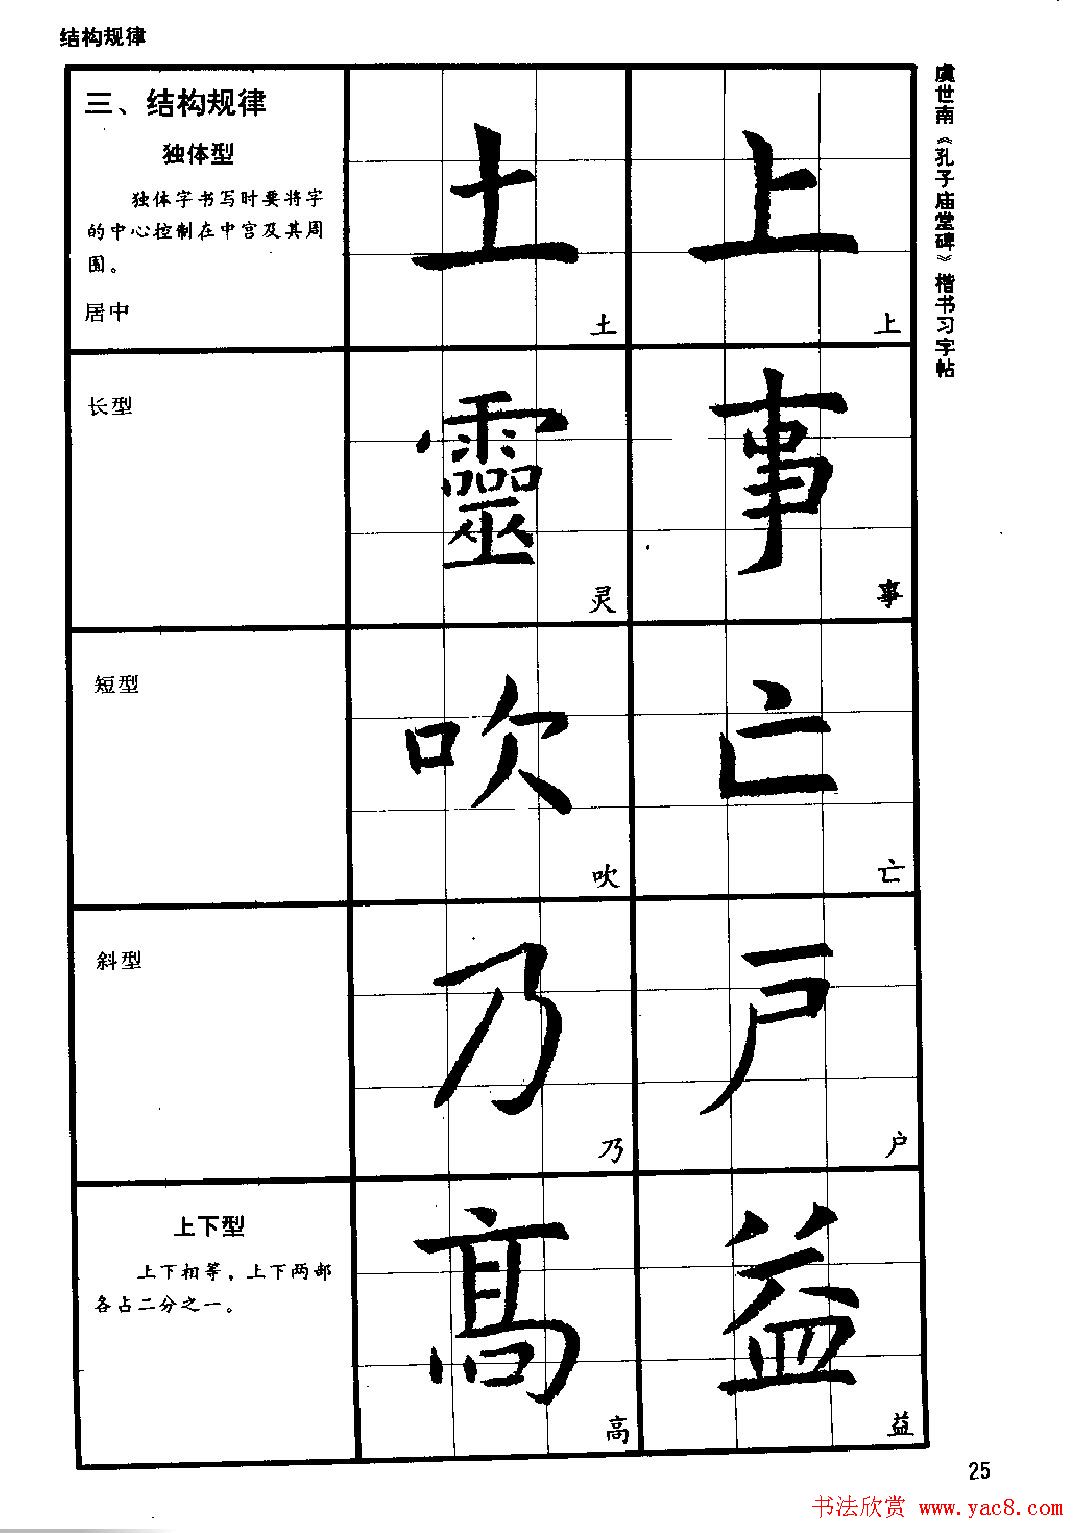 结构规律
三、结构规律
独体型
独体字书写时要将字
的中心控制在中宫及其周
围。
居中
土
上
土
上
长型
靈
事
灵
事
短型
吹
亡
吹
亡
斜型
乃
户
乃
户
上下型
上下相等，上下两部
各占二分之一。
高
益
高
益
虞世南《孔子庙堂碑》楷书习字帖
25
书法欣赏 www.yac8.com